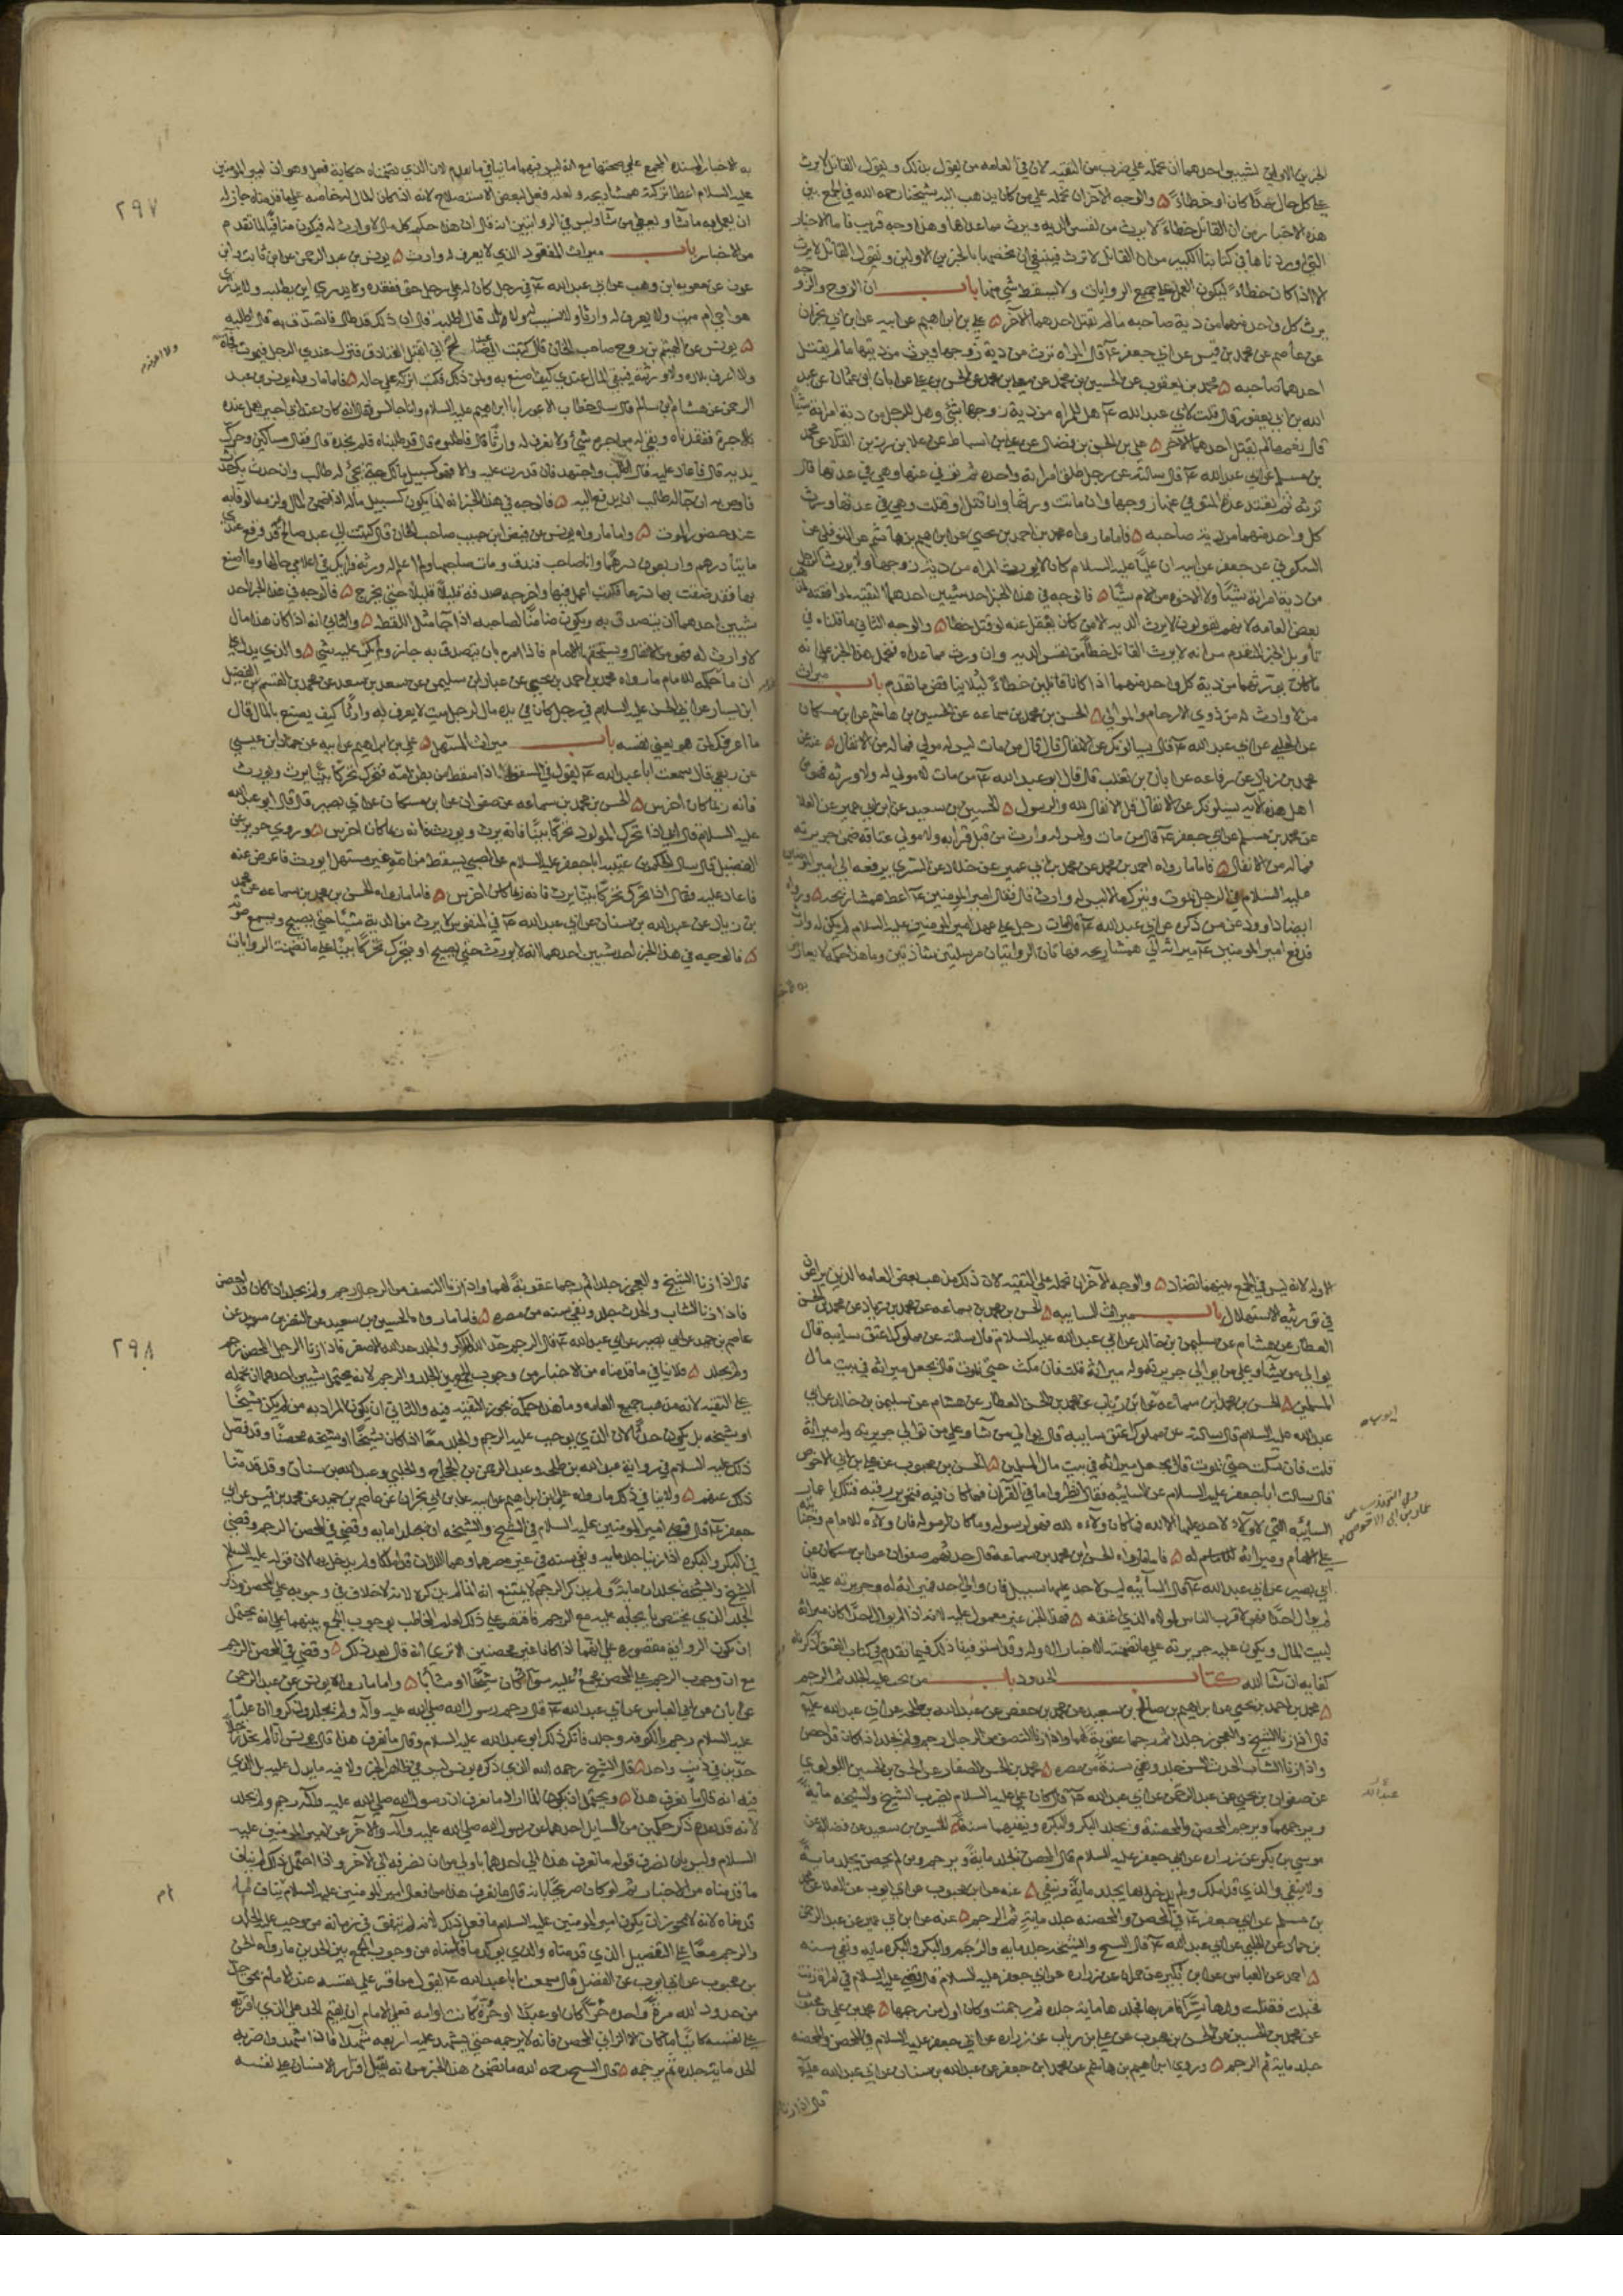 الخبرين الاولين لشيئين احدهما ان نحمله علي ضرب من التقيه لان في العامه من يقول بذلك ويقول القاتل لا يرث
علي كل حال عمدًا كان او خطاءً ٥ والوجه الآخر ان نحمله علي من كان يذهب اليه شيخنا رحمه الله في الجمع بين
هذه الاخبار من ان القاتل خطاءً لا يرث من نفس الديه ويرث مما عداها وهذا وجه قريب فاما الاخبار
التي اوردناها في كتابنا الكبير من ان القاتل لا يرث فينبغي ان نخصها بالخبرين الاولين ونقول القاتل لا يرث
الا اذا كان خطاءً ليكون العمل علي جميع الروايات ولا يسقط شي منها باب ان الزوج والزوجه
يرث كل واحد منهما من دية صاحبه ما لم يقتل احدهما الآخر ٥ علي بن ابراهيم عن ابيه عن ابن ابي نجران
عن عاصم عن محمد بن قيس عن ابي جعفر ع قال المراه ترث من دية زوجها ويرث من ديتها ما لم يقتل
احدهما صاحبه ٥ محمد بن يعقوب عن الحسين بن محمد عن معلي بن محمد عن الحسن بن علي عن ابان بن عثمان عن عبد
الله بن ابي يعفور قال قلت لابي عبد الله ع هل للمراه من دية زوجها شي وهل للرجل من دية امراته شيئًا
قال نعم ما لم يقتل احدهما الآخر ٥ علي بن الحسن بن فضال عن علي بن اسباط عن علا بن رزين القلا عن محمد
بن مسلم عن ابي عبد الله ع قال سالته عن رجل طلق امراته واحدة ثم توفي عنها وهي في عدتها قال
ترثه ثم تعتد عدة المتوفي عنها زوجها وان ماتت ورثها وان قتل او قتلت وهي في عدتها ورث
كل واحد منهما من دية صاحبه ٥ فاما ما رواه محمد بن احمد بن يحيي عن ابراهيم بن هاشم عن النوفلي عن
السكوني عن جعفر عن ابيه ان عليًّا عليه السلام كان لا يورث المراه من دية زوجها ولا يورث الرجل
من دية امراته شيئًا ولا الاخوه من الام شيئًا ٥ فالوجه في هذا الخبر احد شيئين احدهما التقيه لموافقته
بعض العامه لانهم يقولون لا يرث الديه الا من كان يعقل عنه لو قتل خطا ٥ والوجه الثاني ما قلناه في
تأويل الخبر المتقدم من انه لا يورث القاتل خطاً من نفس الديه وان ورث مما عداه فنحمل هذا الخبر علي انه
ما كان يورثهما من دية كل واحد منهما اذا كانا قاتلين خطاءً لئلا يناقض ما تقدم باب ميراث
من لا وارث له من ذوي الارحام والموالي ٥ الحسن بن محمد بن سماعه عن الحسين بن هاشم عن ابن مسكان
عن الحلبي عن ابي عبد الله ع قال يسالونك عن الانفال قال من مات ليس له مولي فماله من الانفال ٥ عنه عن
محمد بن زياد عن رفاعه عن ابان بن تغلب قال قال ابو عبد الله ع من مات لا مولي له ولا ورثه فهو من
اهل هذه الآيه يسئلونك عن الانفال قل الانفال لله والرسول ٥ الحسين بن سعيد عن ابن ابي عمير عن العلا
عن محمد بن مسلم عن ابي جعفر ع قال من مات وليس له وارث من قبل قرابه ولا مولي عتاقه ضمن جريرته
فماله من الانفال ٥ فاما ما رواه احمد بن محمد عن محمد بن ابي عمير عن خلاد عن السري يرفعه الي امير المومنين
عليه السلام في الرجل يموت ويترك مالا ليس له وارث قال فقال امير المومنين ع اعط همشاريجه ٥ وروي
ايضا داود عن من ذكره عن ابي عبد الله ع قال مات رجل علي عهد امير المومنين عليه السلام لم يكن له وارث
فدفع امير المومنين ع ميراثه الي همشاريجه فهاتان الروايتان مرسلتين شاذتين وما هذا حكمه لا يعارض
به الاخبار
به الاخبار المسنده المجمع علي صحتها مع انه ليس فيهما ما ينافي ما تقدم لان الذي تضمناه حكاية فعل وهو ان امير المومنين
عليه السلام اعطا تركته همشاريجه ولعله فعل لبعض الاستصلاح لانه اذا كان المال له خاصه علي ما قدمناه جاز له
ان يعمل به ما شآ ويعطي من شآ وليس في الروايتين انه قال ان هذا حكم كل مال لا وارث له فيكون منافيًا لما تقدم
من الاخبار باب ميراث المفقود الذي لا يعرف له وارث ٥ يونس بن عبد الرحمن عن ابن ثابت وابن
عون عن معويه ابن وهب عن ابي عبد الله ع في رجل كان له علي رجل حق ففقده ولا يدري اين يطلبه ولا يدري
هو احي ام ميت ولا يعرف له وارثا ولا نسب له ولا ولد قال اطلبه قال ان ذلك قد طال فاتصدق به قال اطلبه
٥ يونس عن الهيثم بن روح صاحب الخان قال كتبت الي عبد صالح اني اتقبل الفنادق فينزل عندي الرجل فيموت فجاة
ولا اعرف بلاده ولا ورثته فيبقي المال عندي كيف اصنع به ولمن ذلك فكتب اتركه علي حاله ٥ فاما ما رواه يونس بن عبد
الرحمن عن هشام بن سالم قال سال خطاب الاعور ابا ابراهيم عليه السلام وانا جالس فقال انه كان عند ابي اجير يعمل عنده
بالاجرة ففقدناه وبقي له من اجره شيئ ولا نعرف له وارثًا قال فاطلبوه قال قد طلبناه فلم نجده قال فقال مساكين وحرك
يديه قال فاعاد عليه قال اطلب واجتهد فان قدرت عليه والا فهو كسبيل مالك حتي يجئ له طالب وان حدث بك حدث
فاوص به ان جآ له طالب ان يدفع اليه ٥ فالوجه في هذا الخبر انه انما يكون كسبيل ماله اذا ضمن المال ولزمه الوفآ به
عند حضور الموت ٥ واما ما رواه يونس عن فيض ابن حبيب صاحب الخان قال كتبت الي عبد صالح قد وقع عندي
مايتا درهم واربعون درهمًا وانا صاحب فندق ومات صاحبها ولم اعلم له ورثه فرايك في اعلامي حالها وما اصنع
بها فقد ضقت بها ذرعا فكتب اعمل فيها واخرجه صدقه قليلاً قليلاً حتي يخرج ٥ فالوجه في هذا الخبر احد
شيئين احدهما ان يتصدق به ويكون ضامنًا لصاحبه اذا جآ مثل اللقطه ٥ والثاني انه اذا كان هذا مال
لا وارث له فهو من الانفال ويستحقها الامام فاذا امره بان يتصدق به جاز ولم يكن عليه شي ٥ والذي يدل علي
ان ما حكمه للامام ما رواه محمد بن احمد بن يحيي عن عباد بن سليمن عن سعد بن سعد عن محمد بن القسم بن الفضيل
ابن يسار عن ابي الحسن عليه السلام في رجل كان في يده مال لرجل ميت لا يعرف له وارثًا كيف يصنع بالمال قال
ما اعرفك لمن هو يعني نفسه باب ميراث المستهل ٥ علي بن ابراهيم عن ابيه عن حماد ابن عيسي
عن ربعي قال سمعت ابا عبد الله ع يقول في السقط اذا سقط من بطن امه فتحرك تحركًا بيّنا يرث ويورث
فانه ربما كان اخرس ٥ الحسن بن محمد بن سماعه عن صفوان عن ابن مسكان عن ابي بصير قال قال ابو عبد الله
عليه السلام قال ابي اذا تحرك المولود تحركًا بيّنًا فانه يرث ويورث فانه ربما كان اخرس ٥ وروي حريز عن
الفضيل قال سال الحكم بن عتيبه ابا جعفر عليه السلام عن الصبي يسقط من امه غير مستهل ايورث فاعرض عنه
فاعاد عليه فقال اذا تحرك تحركًا بيّنًا يرث فانه ربما كان اخرس ٥ فاما ما رواه الحسن بن محمد بن سماعه عن محمد
بن زياد عن عبد الله بن سنان عن ابي عبد الله ع في المنفوس لا يرث من الدية شيئًا حتي يصيح ويسمع صوته
٥ فالوجه في هذا الخبر احد شيئين احدهما انه لا يورث حتي يصيح او يتحرك تحركًا بيّنًا علي ما تضمنته الروايات
٢٩٧
الاوله لانه ليس في الجمع بينهما تضاد ٥ والوجه الآخر ان نحمله علي التقيه لان ذلك مذهب بعض العامه الذين يراعون
في توريثه الاستهلال باب ميراث السايبه ٥ الحسن بن محمد بن سماعه عن محمد بن زياد عن محمد بن الحسن
العطار عن هشام عن سليمن بن خالد عن ابي عبد الله عليه السلام قال سالته عن مملوك اعتق سايبه قال
يوالي من يشآ وعلي من يوالي جريرته وله ميراثه قلت فان مكث حتي يموت قال يجعل ميراثه في بيت مال
المسلمين ٥ الحسن بن محمد بن سماعه عن ابن رباب عن محمد بن الحسن العطار عن هشام عن سليمن بن خالد عن ابي
عبد الله عليه السلام قال سالته عن مملوك اعتق سايبة قال يوالي من شآ وعلي من توالي جريرته وله ميراثه
قلت فان مكث حتي يموت قال يجعل ميراثه في بيت مال المسلمين ٥ الحسن بن محبوب عن علي بن ابي الاحوص
قال سالت ابا جعفر عليه السلام عن السايبه فقال انظروا ما في القرآن فما كان فيه فتحرير رقبه فتلك يا عمار
السايبه التي لا ولآء لاحد عليها الا الله فما كان ولآءه لله فهو لرسوله وما كان لرسوله فان ولآءه للامام وجنايته
علي الامام وميراثه له ٥ فاما ما رواه الحسن بن محمد بن سماعة قال حدثهم صفوان عن ابن مسكان عن
ابي بصير عن ابي عبد الله ع قال السآئبه ليس لاحد عليها سبيل فان والي احدا فميراثه له وجريرته عليه فان
لم يوال احدًا فهو لاقرب الناس لمولاه الذي اعتقه ٥ فهذا الخبر غير معمول عليه لانه اذا لم يوال احدًا كان ميراثه
لبيت المال ويكون عليه جريرته علي ما تضمنته الاخبار الاوله وقد استوفينا ذلك فيما تقدم في كتاب العتق
كفايه ان شآ الله كتاب الحدود باب من يجب عليه الجلد ثم الرجم
٥ محمد بن احمد بن يحيي عن ابرهيم بن صالح بن سعيد عن محمد بن حفص عن عبد الله بن طلحه عن ابي عبد الله عليه
قال اذا زنا الشيخ والعجوز جلدا ثم رجما عقوبة لهما واذا زنا النصف من الرجال رجم ولم يجلد اذا كان قد احصن
واذا زنا الشاب الحدث السن جلد ونفي سنةً من مصره ٥ محمد بن الحسن الصفار عن الحسن بن الحسين اللولوي
عن صفوان بن يحيي عن عبد الرحمن عن ابي عبد الله ع قال كان علي عليه السلام يضرب الشيخ والشيخه مايةً
ويرجمهما ويرجم المحصن والمحصنة ويجلد البكر والبكره وينفيهما سنةً ٥ الحسين بن سعيد عن فضالة عن
موسي بن بكر عن زراره عن ابي جعفر عليه السلام قال المحصن يجلد مايةً ويرجم ومن لم يحصن يجلد مايةً
ولا ينفي والذي قد املك ولم يدخل بها يجلد مايةً وينفي ٥ عنه عن ابن محبوب عن ابي ايوب عن العلا عن محمد
بن مسلم عن ابي جعفر ع في المحصن والمحصنه جلد ماية ثم الرجم ٥ عنه عن ابن ابي عمير عن عبد الرحمن
بن حماد عن الحلبي عن ابي عبد الله ع قال الشيخ والشيخه جلد مايه والرجم والبكر والبكره مايه ونفي سنه
٥ احمد عن العباس عن ابن بكير عن حمران عن زراره عن ابي جعفر عليه السلام قال قضي علي عليه السلام في امراة زنت
فحبلت فقتلت ولدها سرًّا فامر بها فجلدها ماية جلده ثم رجمت وكان اول من رجمها ٥ محمد بن علي بن محبوب
عن محمد بن الحسين عن الحسن بن محبوب عن علي بن رباب عن زراره عن ابي جعفر عليه السلام في المحصن والمحصنه
جلد ماية ثم الرجم ٥ وروي ابراهيم بن هاشم عن محمد ابن جعفر عن عبد الله بن سنان عن ابي عبد الله عليه
قال اذا زنا
قال اذا زنا الشيخ والعجوز جلدا ثم رجما عقوبةً لهما واذا زنا النصف من الرجال رجم ولم يجلد اذا كان قد احصن
فاذا زنا الشاب الحدث جلد ونفي سنه من مصره ٥ فاما ما رواه الحسين بن سعيد عن النضر بن سويد عن
عاصم بن حميد عن ابي بصير عن ابي عبد الله ع قال الرجم حد الله الاكبر والجلد حد الله الاصغر فاذا زنا الرجل المحصن رجم
ولم يجلد ٥ فلا ينافي ما قدمناه من الاخبار من وجوب الجمع بين الجلد والرجم لانه يحتمل شيئين احدهما ان نحمله
علي التقيه لانه مذهب جميع العامه وما هذا حكمه يجوز التقيه فيه والثاني ان يكون المراد به من لم يكن شيخًا
او شيخه بل يكون حدثًا لان الذي يوجب عليه الرجم والجلد معًا اذا كان شيخًا او شيخه محصنًا وقد فصل
ذلك عليه السلام في رواية عبد الله بن طلحه وعبد الرحمن بن الحجاج والحلبي وعبد الله بن سنان وقد قدمنا
ذلك عنهم ٥ ولا ينافي ذلك ما رواه علي ابن ابراهيم عن ابيه عن ابن ابي نجران عن عاصم بن حميد عن محمد بن قيس عن ابي
جعفر ع قال قضي امير المومنين عليه السلام في الشيخ والشيخه ان يجلدا مايه وقضي في المحصن الرجم وقضي
في البكر والبكره اذا زنيا جلد مايه ونفي سنه في غير مصرهما وهما اللذان قد املكا ولم يدخل بها لان قوله عليه السلام
الشيخ والشيخة يجلدان مايةً ولم يذكر الرجم لا يمتنع انه انما لم يذكره لانه لا خلاف في وجوبه علي المحصن وذكر
الجلد الذي يختص بايجابه عليه مع الرجم فاقتصر علي ذلك لعلم المخاطب بوجوب الجمع بينهما علي انه يحتمل
ان يكون الروايه مقصوره علي انهما اذا كانا غير محصنين الا تري انه قال بعد ذلك ٥ وقضي في المحصن الرجم
مع ان وجوب الرجم علي المحصن مجمع عليه سوآ كان شيخًا او شآبًا ٥ واما ما رواه يونس عن عبد الرحمن
عن ابان عن ابي العباس عن ابي عبد الله ع قال رجم رسول الله صلي الله عليه وآله ولم يجلد وذكروا ان عليًّا
عليه السلام رجم بالكوفه وجلد فانكر ذلك ابو عبد الله عليه السلام وقال ما نعرف هذا قال يونس اي لم نحد رجلا
حدّين في ذنب واحد ٥ قال الشيخ رحمه الله الذي ذكره يونس ليس في ظاهر الخبر ولا فيه ما يدل عليه بل الذي
فيه انه قال ما نعرف هذا ٥ ويحتمل ان يكون انما اراد ما نعرف ان رسول الله صلي الله عليه وآله رجم ولم يجلد
لانه قد تقدم ذكر حكمين من السايل احدهما عن رسول الله صلي الله عليه وآله والآخر عن امير المومنين عليه
السلام وليس بان نصرف قوله ما نعرف هذا الي احدهما باولي من ان نصرفه الي الآخر واذا احتمل ذلك لم يناف
ما قدمناه من الاخبار ثم لو كان صريحًا بانه قال ما نعرف هذا من فعل امير المومنين عليه السلام لم يناف
قدمناه لانه لا يجوز ان يكون امير المومنين عليه السلام ما فعل ذلك لانه لم يتفق في زمانه من وجب عليه الجلد
والرجم معًا علي التفصيل الذي قدمناه والذي يوكد ما قلناه من وجوب الجمع بين الحدين ما رواه الحسن
بن محبوب عن ابي ايوب عن الفضل قال سمعت ابا عبد الله ع يقول من اقر علي نفسه عند الامام بحق
من حدود الله مرةً واحدة حرًّا كان او عبدًا او حرّة كانت او امه فعلي الامام ان يقيم الحد علي الذي اقر به
علي نفسه كائنًا ما كان الا الزاني المحصن فانه لا يرجمه حتي يشهد عليه اربعه شهدآ فاذا شهدوا ضربه
الحد ماية جلده ثم يرجمه ٥ قال الشيخ رحمه الله ما تضمن هذا الخبر من انه يقبل اقرار الانسان علي نفسه
٢٩٨